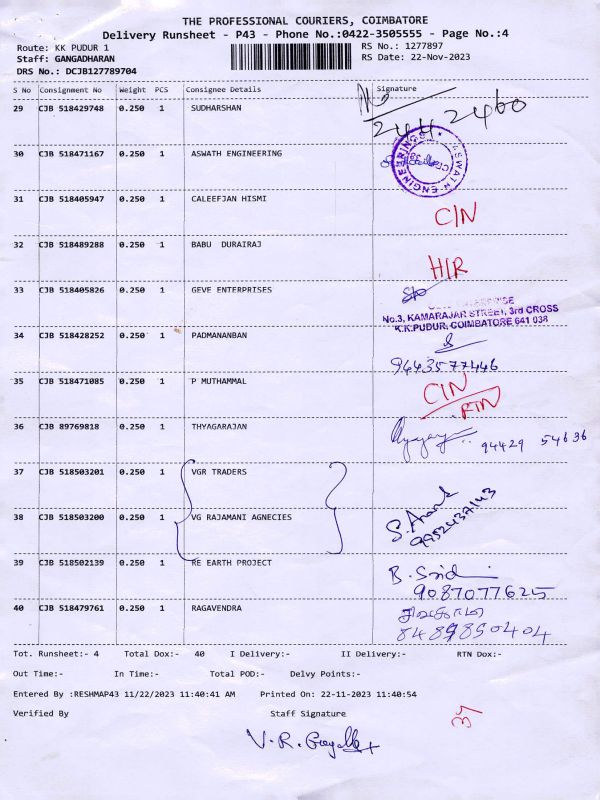 THE PROFESSIONAL COURIERS, COIMBATORE
Delivery Runsheet - P43 - Phone No.:0422-3505555 - Page No.:4
Route: KK PUDUR 1
RS No.: 1277897
Staff: GANGADHARAN
RS Date: 22-Nov-2023
DRS No.: DCJB127789704
S No Consignment No Weight PCS Consignee Details Signature
29 CJB 518429748 0.250 1 SUDHARSHAN
30 CJB 518471167 0.250 1 ASWATH ENGINEERING
ASWATH ENGINEERINGS
31 CJB 518405947 0.250 1 CALEEFJAN HISMI C/N
32 CJB 518489288 0.250 1 BABU DURAIRAJ H/R
33 CJB 518405826 0.250 1 GEVE ENTERPRISES
No.3, KAMARAJAR STREET, 3rd CROSS
K.K.PUDUR, COIMBATORE 641 038
34 CJB 518428252 0.250 1 PADMANANBAN
9443577446
35 CJB 518471085 0.250 1 P MUTHAMMAL C/N
RTN
36 CJB 89769818 0.250 1 THYAGARAJAN 94429 54636
37 CJB 518503201 0.250 1 VGR TRADERS
38 CJB 518503200 0.250 1 VG RAJAMANI AGNECIES
39 CJB 518502139 0.250 1 RE EARTH PROJECT
9087077625
40 CJB 518479761 0.250 1 RAGAVENDRA
8489850404
Tot. Runsheet:- 4 Total Dox:- 40 I Delivery:- II Delivery:- RTN Dox:-
Out Time:- In Time:- Total POD:- Delvy Points:-
Entered By :RESHMAP43 11/22/2023 11:40:41 AM Printed On: 22-11-2023 11:40:54
Verified By Staff Signature
37